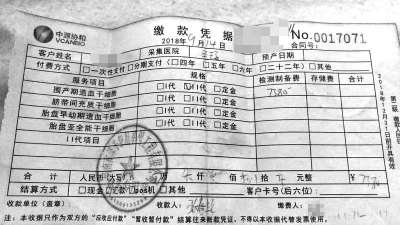 中源协和
VCANBIO
缴款凭据
2018年9月14日
No.0017071
合同号:
客户姓名
采集医院
预产日期
付费方式 □一次性支付 □分期支付(□四年 □五年 □六年 □二十年) □其他
服务项目
规格
检测制备费 存储费 合计
围产期造血干细胞 □Ⅰ代 □Ⅱ代 □定金
脐带间充质干细胞 □Ⅰ代 □Ⅱ代 □定金
胎盘早幼期造血干细胞 □Ⅰ代 □Ⅱ代 □定金
胎盘亚全能干细胞 □Ⅰ代 □Ⅱ代 □定金
Ⅱ代项目
合计 人民币(大写) 万 仟 佰 拾 元整
结算方式 □现金 □汇款 □pos机 □其他
客户卡号(后六位):
收款单位(盖章):
收款人:
缴款人:
注:本收据只作为双方的“应收应付款”“暂收暂付款”结算往来款凭证,不得以本收据代替发票使用。
第二联 缴款人
2018年12月31日前开具有效